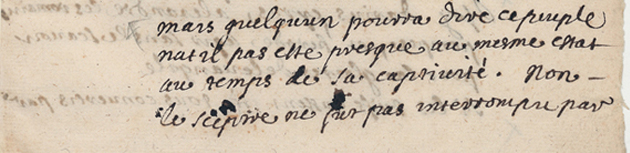 mais quelquun pourra dire ce peuple
nat il pas esté presque au mesme estat
au temps de sa captivité. Non –
le sceptre ne fut pas interrompu par